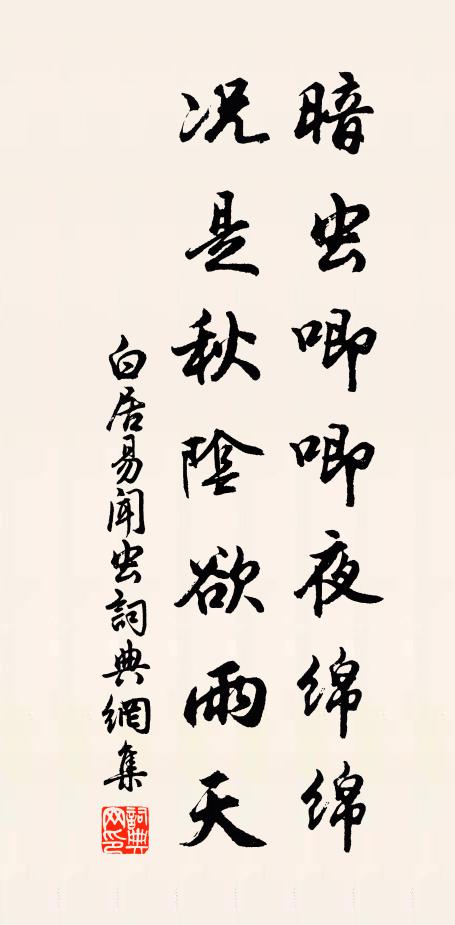 暗虫唧唧夜绵绵
况是秋陰欲雨天
白居易闻虫詞典網集
詞典网印